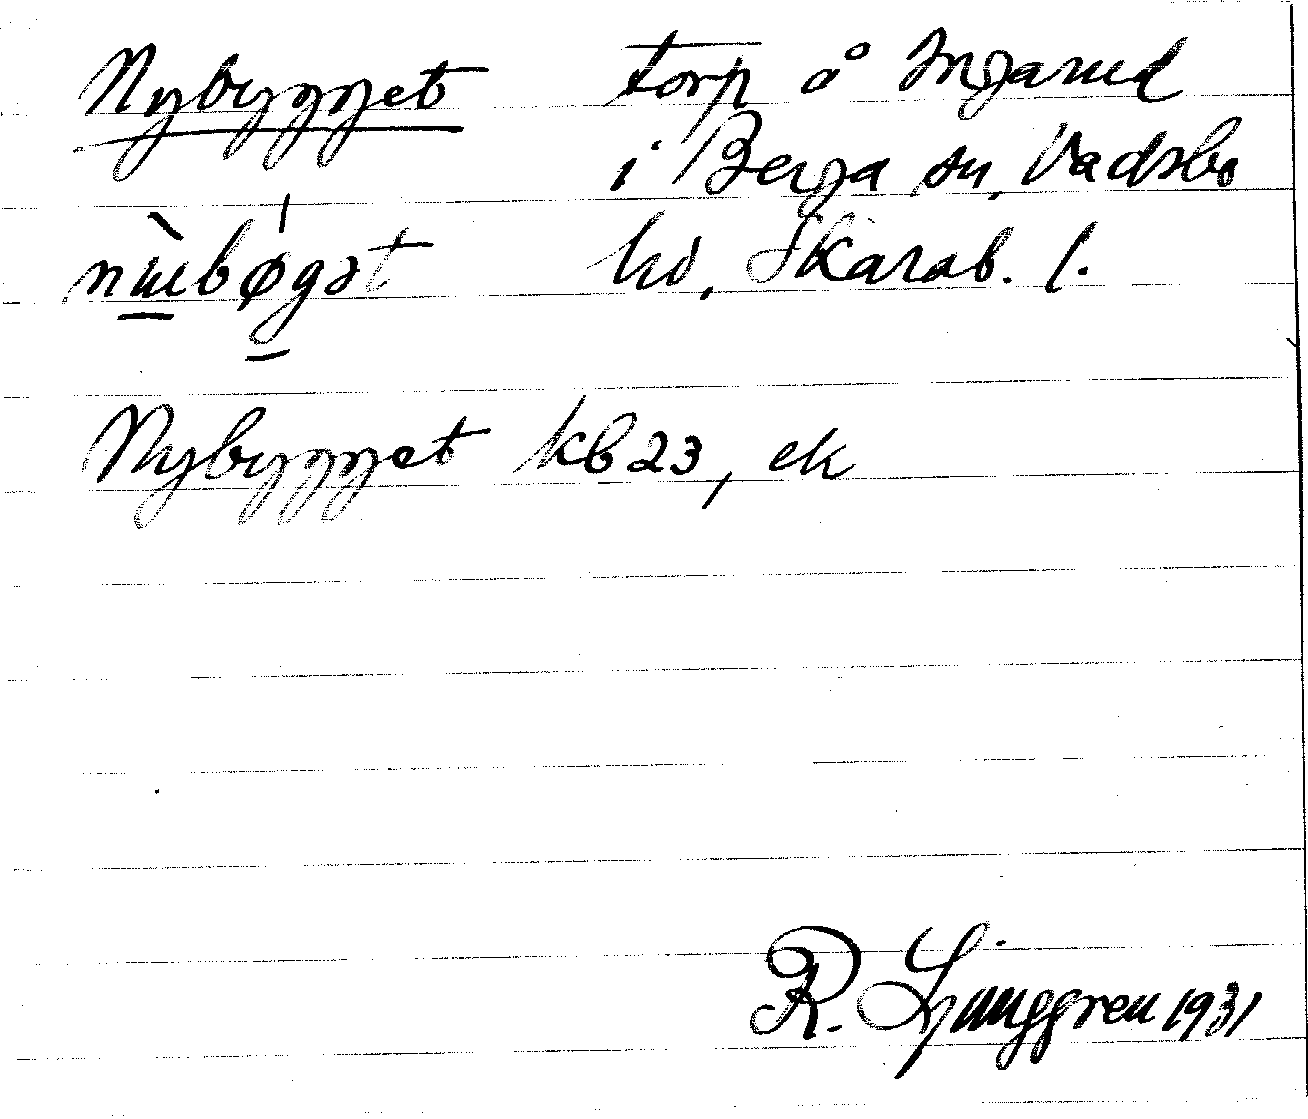 Nybygget torp å Ingarud
i Berga sn, Vadsbo
nɯbøgət hd, Skarab. l.
Nybygget kb 23, ek
R. Ljunggren 1931